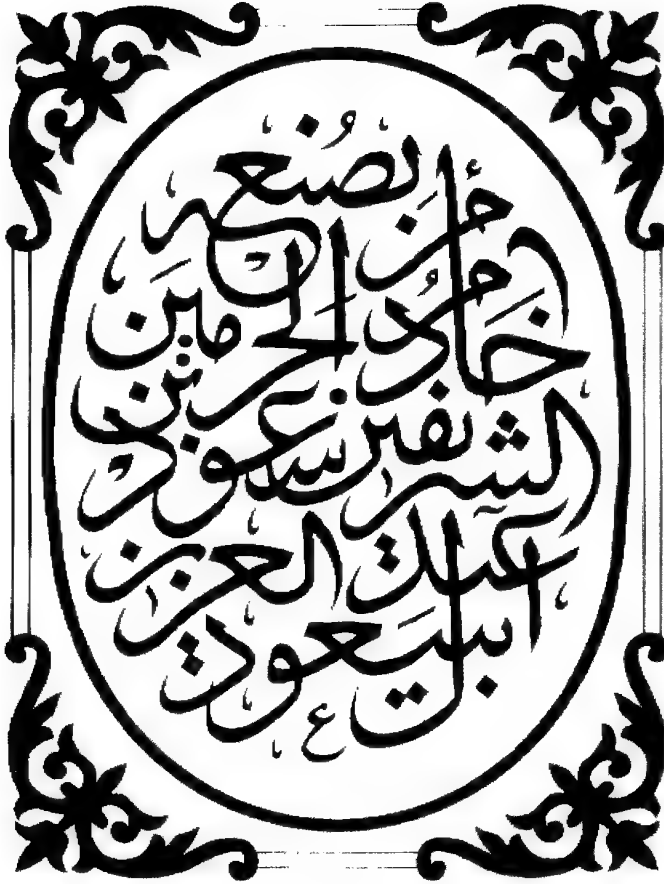 أمر بصنعه
خادم الحرمين
الشريفين سعود بن
عبد العزيز
آل سعود